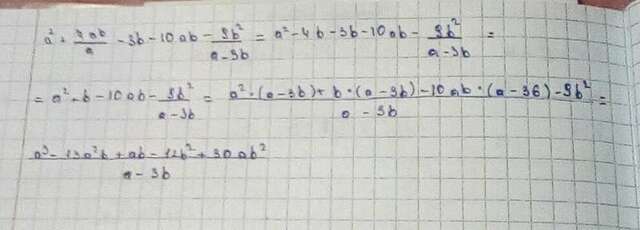 a² + 4ab/a - 3b - 10ab - 9b²/(a-3b) = a² - 4b - 3b - 10ab - 9b²/(a-3b) =
= a² - b - 10ab - 9b²/(a-3b) = (a²·(a-3b) + b·(a-3b) - 10ab·(a-3b) - 9b²)/(a-3b) =
(a³ - 13a²b + ab - 12b² + 30ab²)/(a-3b)